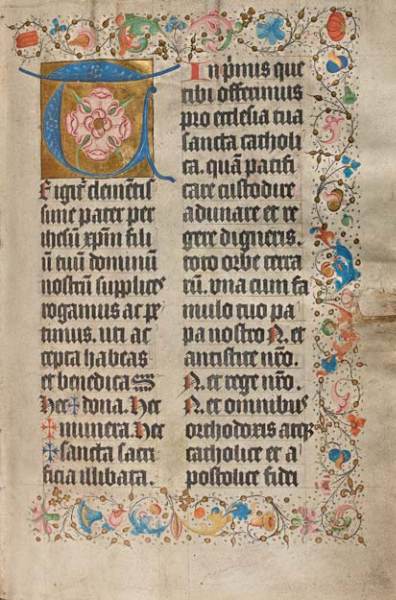 T
E igit̃ clemẽtis
sime pater per
ihesũ xp̃m fili
ũ tuũ dominũ
nostrũ supplices
rogamus ac pe
timus. uti ac
cepta habeas
et benedicas
Hec ✝ dona. Hec
✝ munera. Hec
✝ sancta sacri
ficia illibata.
In p̃mis que
tibi offerimus
pro ecclesia tua
sancta catholi
ca. quã pacifi
care custodire
adunare et re
gere digneris.
toto orbe terra
rũ. vna cum fa
mulo tuo pa
pa nostro N. et
antistite nr̃o.
N. et rege nr̃o.
N. et omnibus
orthodoxis atqꝫ
catholice et a
postolice fidei